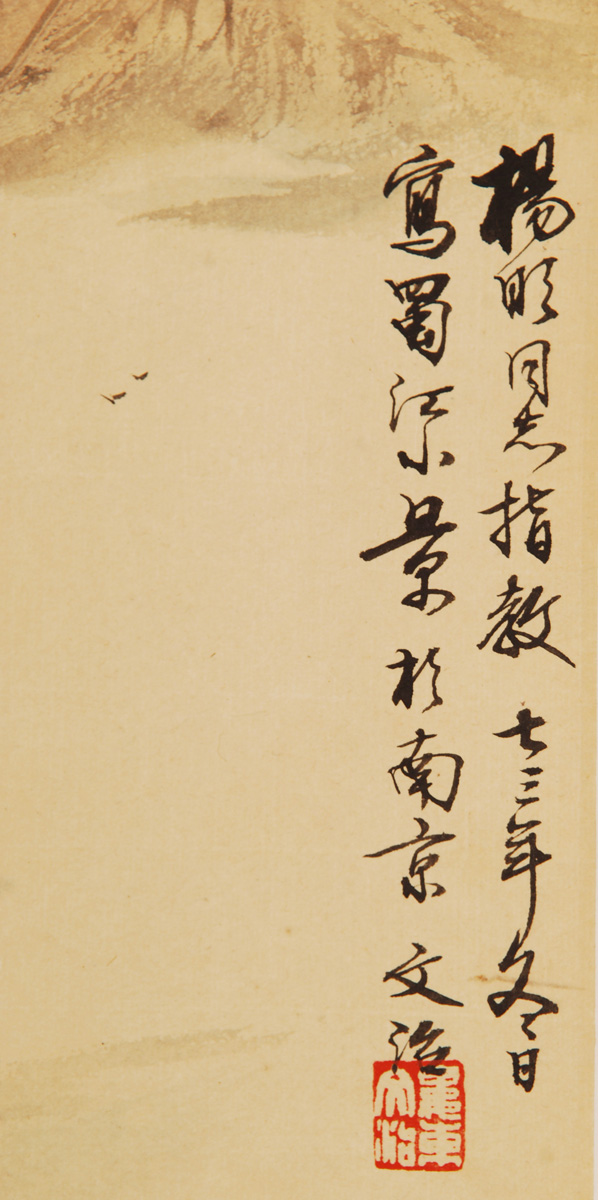 楊同志指教 七三年冬日
寫蜀江小景於南京 文治
婁東文治